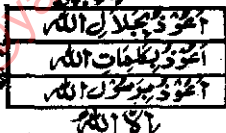 اَعُوْذُ بِجَلَالِ اللّٰهِ
اَعُوْذُ بِكَلِمَاتِ اللّٰهِ
اَعُوْذُ بِرَسُوْلِ اللّٰهِ
اِلَّا اللّٰهُ